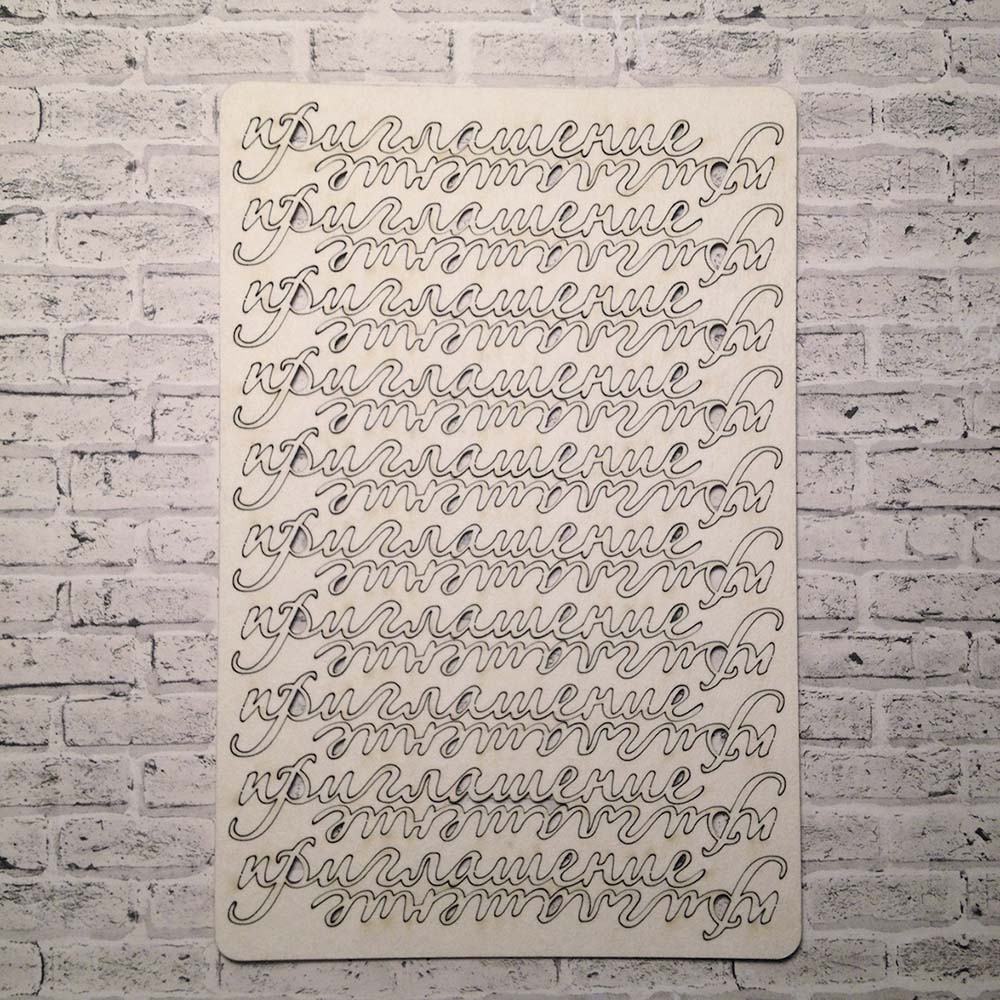 приглашение
приглашение
приглашение
приглашение
приглашение
приглашение
приглашение
приглашение
приглашение
приглашение
приглашение
приглашение
приглашение
приглашение
приглашение
приглашение
приглашение
приглашение
приглашение
приглашение